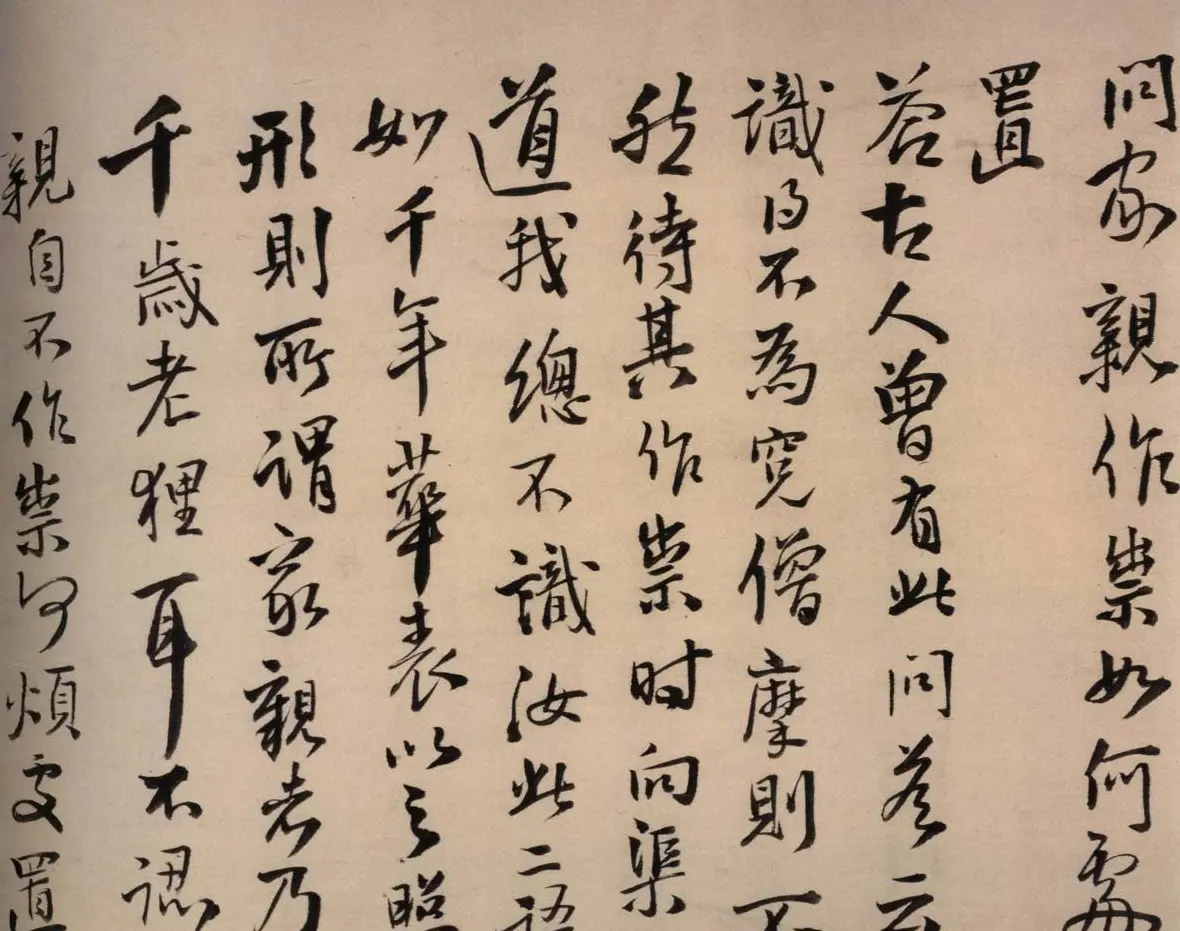 問家親作祟如何處
置
答古人曾有此問答云
識得不為冤僧摩則不
然待其作祟時向渠
道我總不識汝此二語
如千年華表以之照
形則所謂家親者乃
千歲老狸耳不認
親自不作祟何煩處置